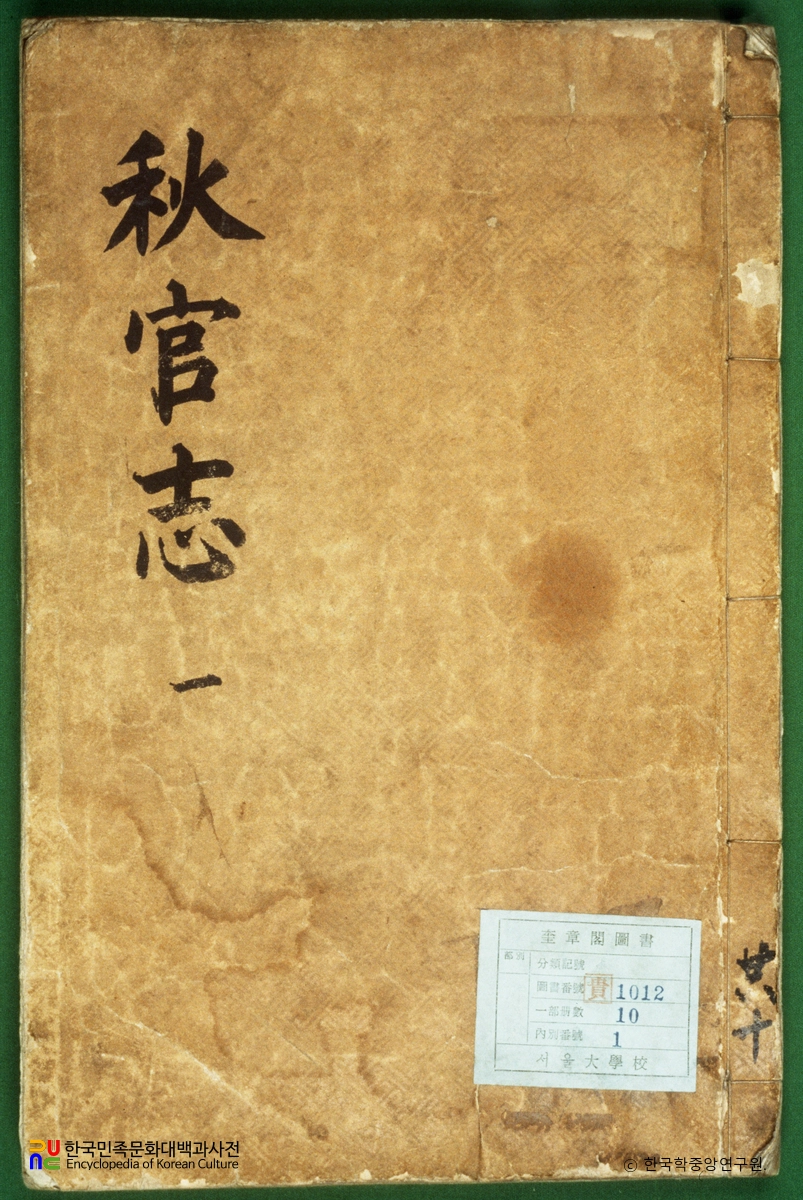 秋官志 一
共十
奎章閣圖書
部門
分類記號
圖書番號 貴 1012
一部冊數 10
內別番號 1
서울大學校
한국민족문화대백과사전
Encyclopedia of Korean Culture
© 한국학중앙연구원